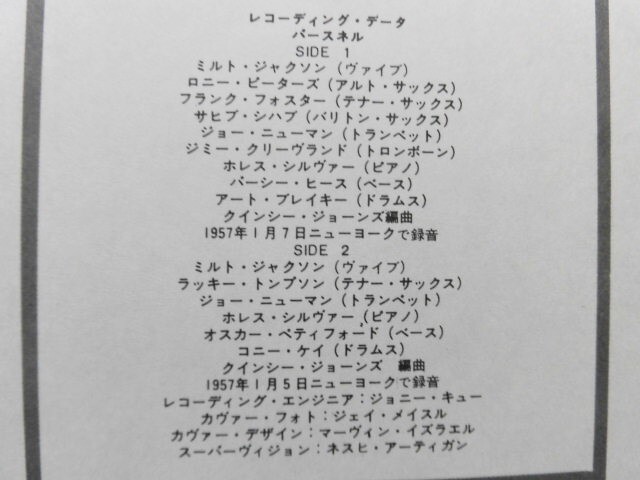 レコーディング・データ
パースネル
SIDE 1
ミルト・ジャクソン（ヴァイブ）
ロニー・ピーターズ（アルト・サックス）
フランク・フォスター（テナー・サックス）
サヒブ・シハブ（バリトン・サックス）
ジョー・ニューマン（トランペット）
ジミー・クリーヴランド（トロンボーン）
ホレス・シルヴァー（ピアノ）
パーシー・ヒース（ベース）
アート・ブレイキー（ドラムス）
クインシー・ジョーンズ編曲
1957年1月7日ニューヨークで録音
SIDE 2
ミルト・ジャクソン（ヴァイブ）
ラッキー・トンプソン（テナー・サックス）
ジョー・ニューマン（トランペット）
ホレス・シルヴァー（ピアノ）
オスカー・ペティフォード（ベース）
コニー・ケイ（ドラムス）
クインシー・ジョーンズ　編曲
1957年1月5日ニューヨークで録音
レコーディング・エンジニア：ジョニー・キュー
カヴァー・フォト：ジェイ・メイスル
カヴァー・デザイン：マーヴィン・イズラエル
スーパーヴィジョン：ネスヒ・アーティガン